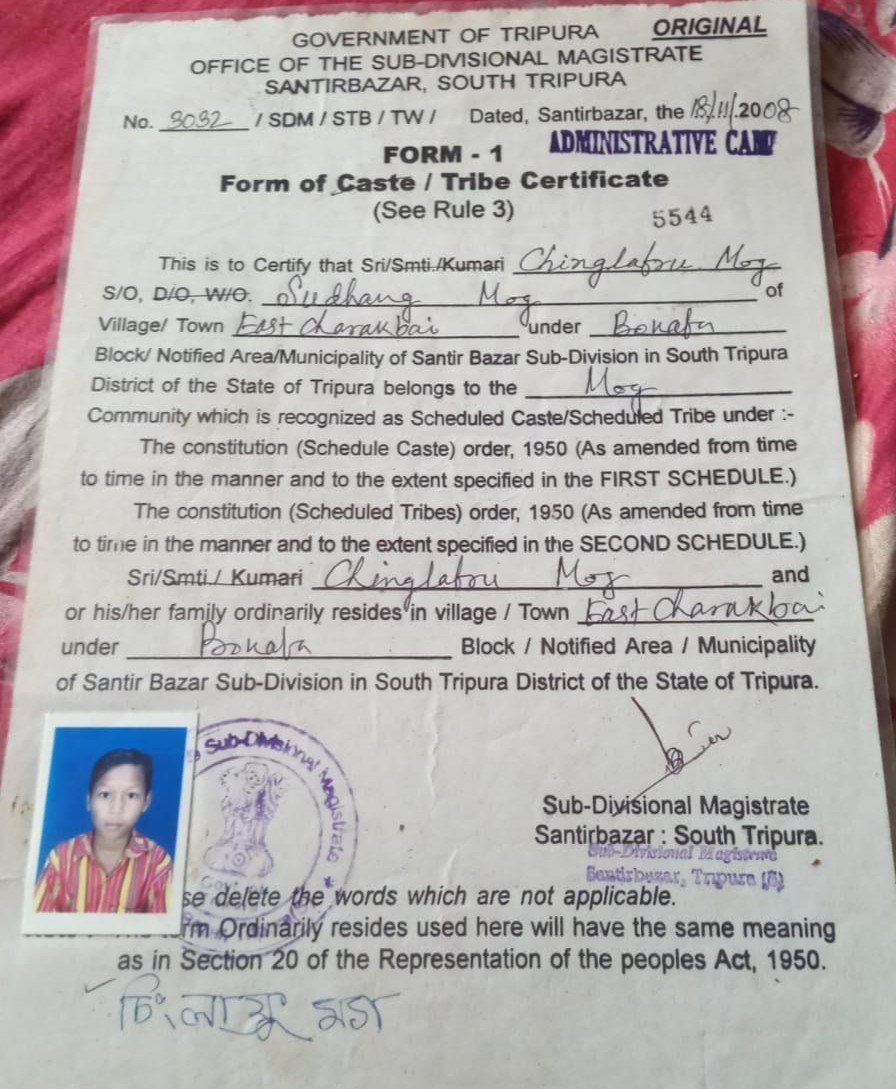 GOVERNMENT OF TRIPURA ORIGINAL
OFFICE OF THE SUB-DIVISIONAL MAGISTRATE
SANTIRBAZAR, SOUTH TRIPURA
No. 3032 / SDM / STB / TW / Dated, Santirbazar, the 18/11/.2008
ADMINISTRATIVE CAMP
FORM - 1
Form of Caste / Tribe Certificate
(See Rule 3)
5544
This is to Certify that Sri/Smti./Kumari Chinglafru Mog
S/O, D/O, W/O. Sudhang Mog of
Village/ Town East Charakbai under Bokafa
Block/ Notified Area/Municipality of Santir Bazar Sub-Division in South Tripura
District of the State of Tripura belongs to the Mog
Community which is recognized as Scheduled Caste/Scheduled Tribe under :-
The constitution (Schedule Caste) order, 1950 (As amended from time
to time in the manner and to the extent specified in the FIRST SCHEDULE.)
The constitution (Scheduled Tribes) order, 1950 (As amended from time
to time in the manner and to the extent specified in the SECOND SCHEDULE.)
Sri/Smti./ Kumari Chinglafru Mog and
or his/her family ordinarily resides in village / Town East Charakbai
under Bokafa Block / Notified Area / Municipality
of Santir Bazar Sub-Division in South Tripura District of the State of Tripura.
Sub-Divisional Magistrate
Sub-Divisional Magistrate
Santirbazar : South Tripura.
Sub-Divisional Magistrate
Santirbazar, Tripura (S)
se delete the words which are not applicable.
rm Ordinarily resides used here will have the same meaning
as in Section 20 of the Representation of the peoples Act, 1950.
চিংলাফ্রু মগ